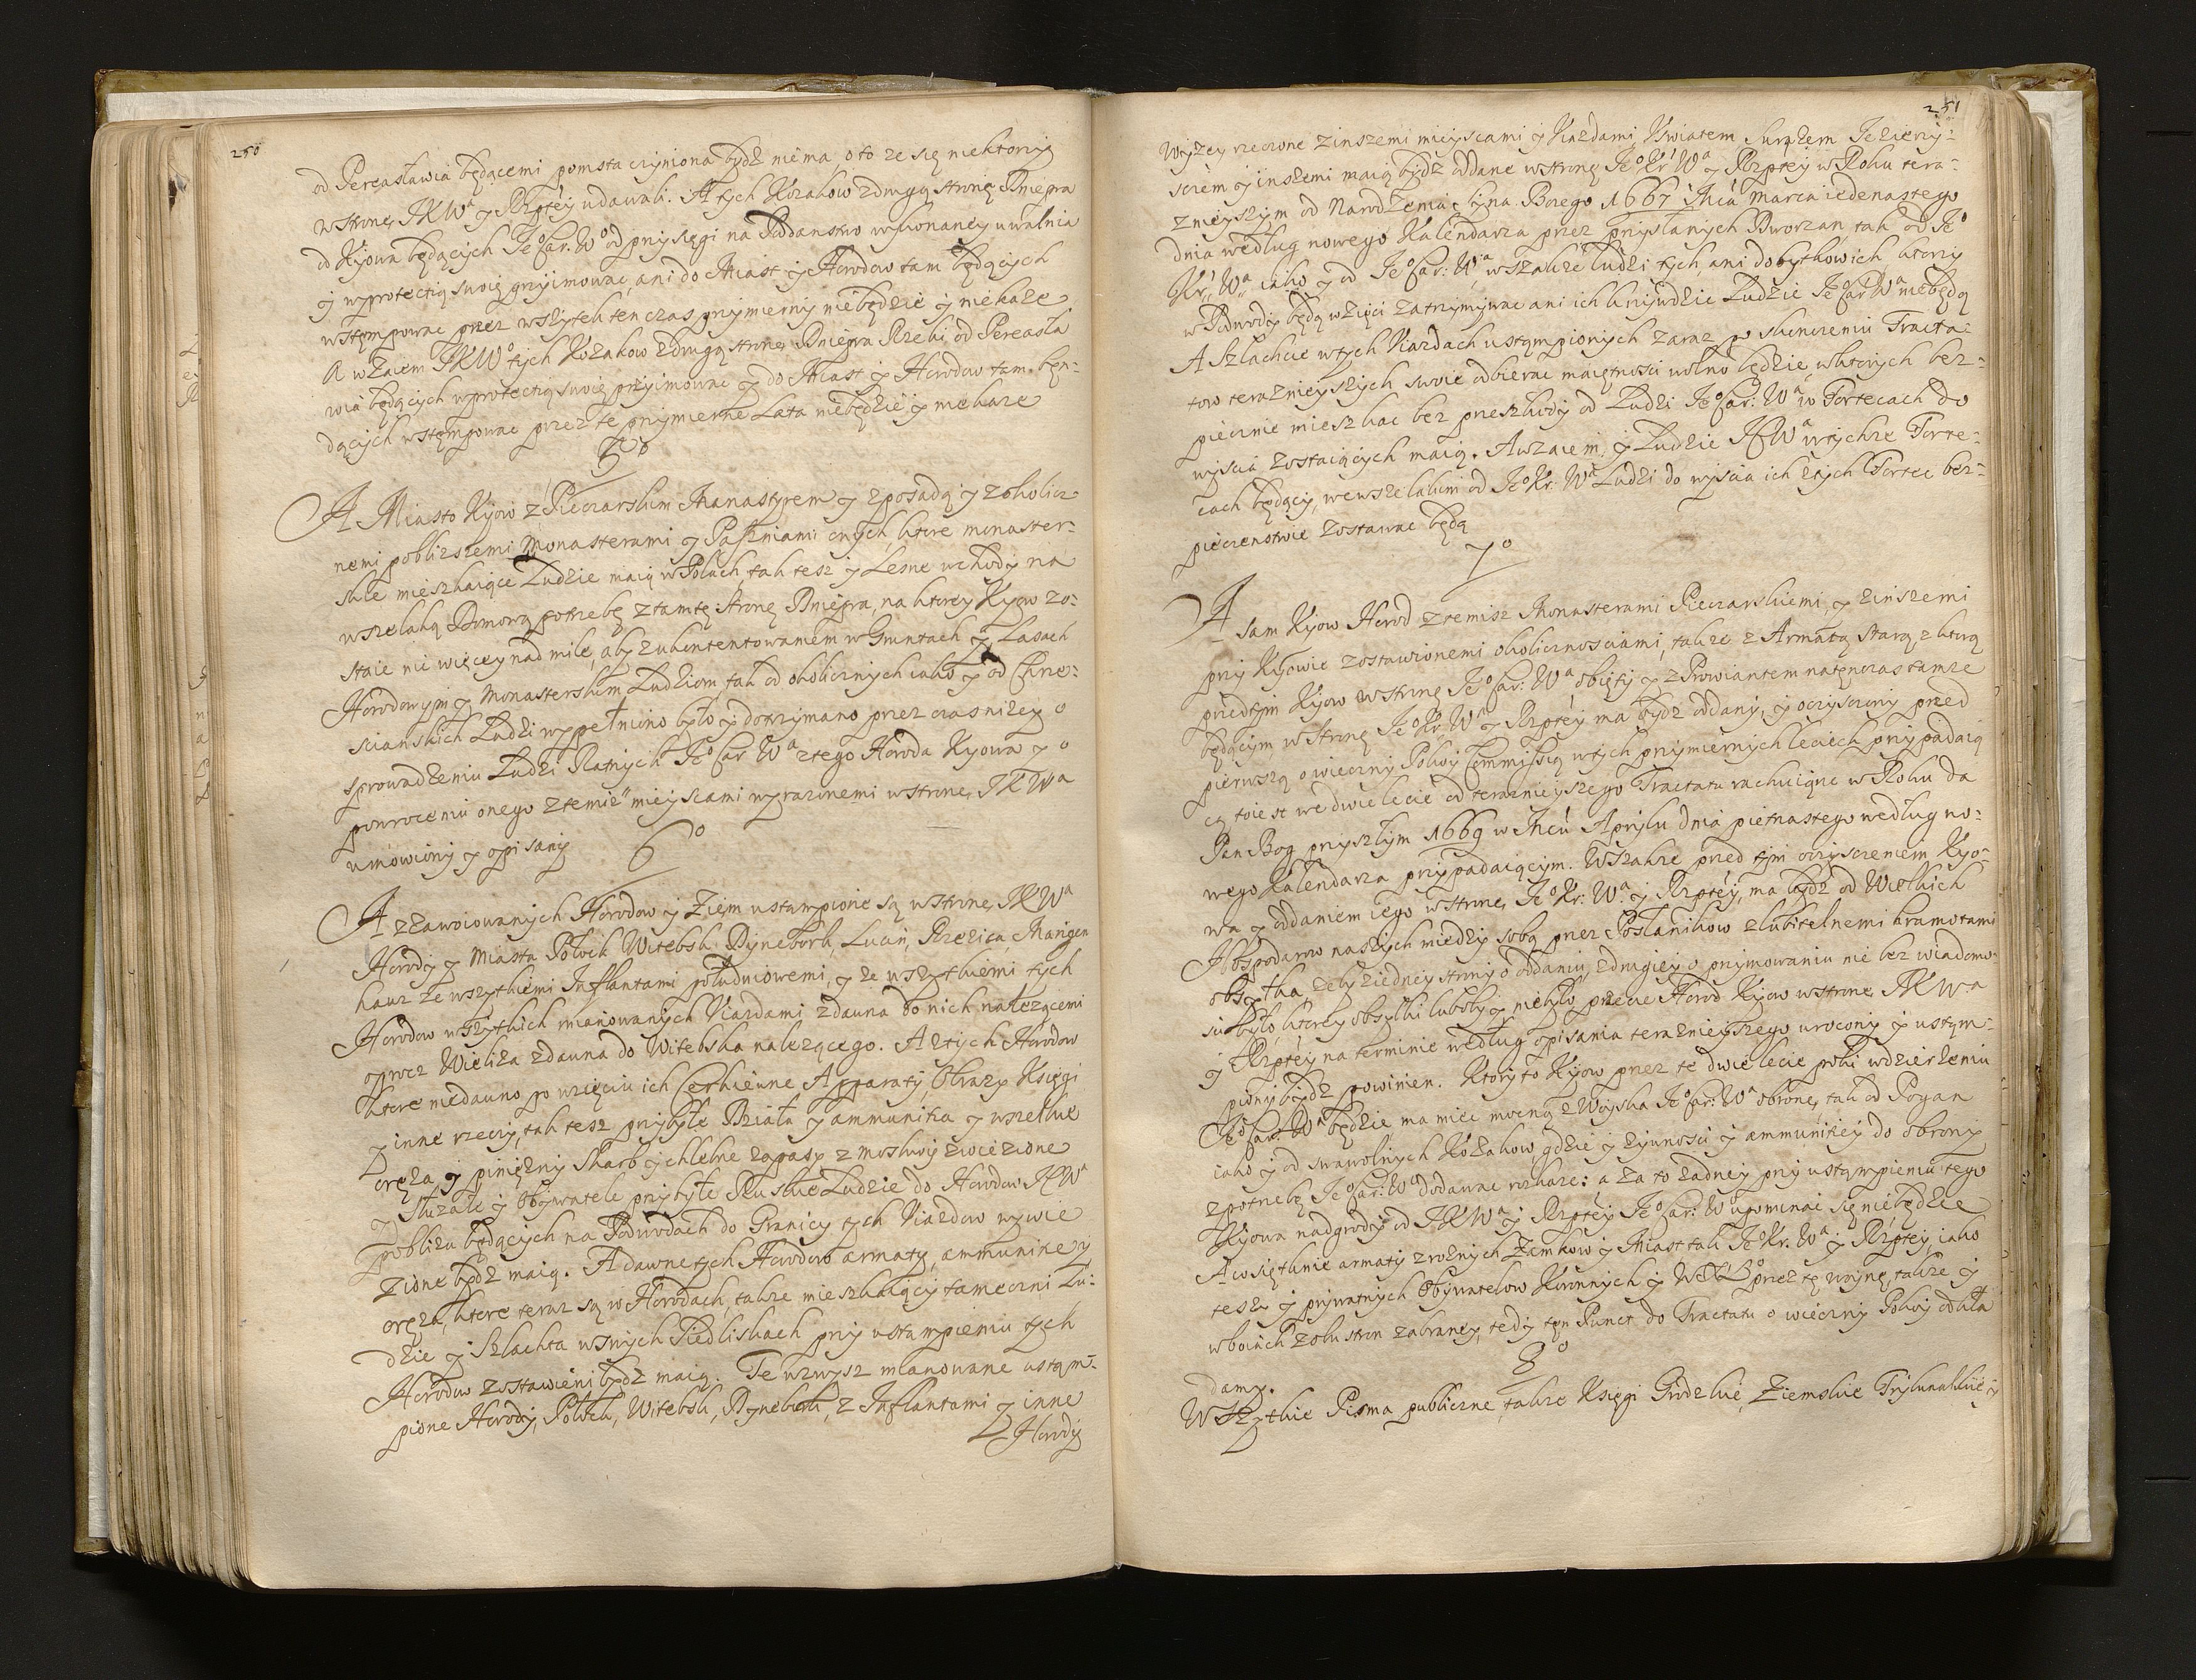 250
od Pereasławia będącemi pomsta czyniona bydź niema, o to ze się niektorzy
w stronę JKWa y Rzptey udawali. A tych Kozakow z drugą stronę Dniepra
od Kyowa będących Jeo Car. Wo od przysięgi na Poddanstwo wykonaney uwalnia
y w protectią swoię przyimowac, ani do Miast y Horodow tam będących
wstępowac przez wszytek ten czas przymierny niebędzie y niekaze
A wzaiem JKWo tych Kozakow z drugą stronę Dniepra Rzeki od Pereasła
wia będących w protectią swoię przyimowac y do Miast y Horodow tam będ-
dących wstępowac przez te przymierne Lata niebędzie y niekaze
5to
A Miasto Kyow z Pieczarskim Manastyrem y z posadą y z okolicz
nemi pobliższemi Monasterami y Paszniami onych, ktore monaster-
skie mieszkaiące Ludzie maią w Polach, tak tesz y Lesne wchody na
wszelaką Domową potrzebę z tamtę Stronę Dniepra, na ktorey Kyow zo-
staie nie więcey nad milę, aby z ukontentowaniem w Gruntach y Lasach
Horodowym y Monasterskim Ludziom, tak od okolicznych iako y od Chrze-
scianskich Ludzi wypełniono było y dotrzymano przez czas nizey o
sprowadzeniu Ludzi Ratnych Jeo Car Wa z tego Horoda Kyowa y o
powroceniu onego z temiż mieyscami wyrazonemi w stronę JKWa
umowiony y opisany
6o
A z zawoiowanych Horodow y Ziem ustąmpione są w stronę JKWa
Horody y Miasta Połock Witebsk Dynebork, Lucin, Rzezica, Marigen
hauz ze wszytkiemi Inflantami południowemi, y ze wszytkiemi tych
Horodow wszytkich mianowanych Uiazdami zdawna do nich nalezącemi
oprocz Wieliża zdawna do Witebska nalezącego. A z tych Horodow
ktore niedawno po wzięciu ich Cerkiewne Apparaty, Obrazy Księgi
y inne rzeczy, tak tesz przybyłe Działa y ammunitia y wszelkie
oręża y pinięzny Skarb y chlebne zapasy z moskwy zwiezione
y Słuzałe y Obywatele przybyłe Ruskie Ludzie do Horodow JKWa
pobliżu będących na Podwodach do Granicy tych Uiazdow wywie
zione bydz maią. A dawne tych Horodow armaty, ammunitiey
oręża, ktore teraz są w Horodach, takze mieszkaiący tameczni Lu-
dzie y Szlachta w swych Siedliskach przy ustąmpieniu tych
Horodow zostawieni bydz maią. Te wzwysz mianowane ustąm-
pione Horody, Połock, Witebsk, Dyneburk, z Inflantami y inne
Horody
251
wyzey rzeczone z inszemi mieyscami y Uiazdami, Uswiatem Surażem Jezierzy-
scem y inszemi maią bydź oddane w stronę Jeo Kr Wa y Rzptey w Roku tera-
znieyszym od Narodzenia Syna Bozego 1667 Mca Marca iedenastego
dnia według nowego Kalendarza przez przysłanych Dworzan, tak od Jeo
Kr. Wa iako y od Jeo Car. Wa, wszakze ludzi tych, ani dobytkow ich, ktorzy
w Podwody będą wzięci zatrzymywac ani ich krzywdzic Ludzie Jeo Car Wa niebędą
A Szlachcie w tych Uiazdach ustąmpionych zaraz po skonczeniu Tracta-
tow teraznieyszych swoie odbierac maiętnosci wolno będzie, w ktorych bez-
piecznie mieszkac bez przeszkody od Ludzi Jeo Car. Wa w Fortecach do
wyscia zostaiących maią. A wzaiem y Ludzie JCWa w tychze Forte-
cach będący, we wszelakim od Jeo Kr. Wa Ludzi do wyscia ich z tych Fortec bez-
pieczenstwie zostawac będą
7o
A sam Kyow Horod z temisz Monasterami Pieczarskiemi, y z inszemi
przy Kyowie zostawionemi okolicznosciami, takze z Armatą starą z ktorą
przedtym Kyow w stronę Jeo Car. Wa obięty y z Prowiantem natenczas tamze
będącym, w stronę Jeo Kr. Wa y Rzptey ma bydz oddany, y oczysczony przed
pierwszą o wieczny Pokoy Commissią w tych przymiernych leciech przypadaią
cą toiest we dwie lecie od teraznieyszego Tractatu rachuiąc w Roku da
Pan Bog przyszłym 1669 w Mcu Aprylu dnia pietnastego według no-
wego Kalendarza przypadaiącym. Wszakze przed tym oczysczeniem Kyo-
wa y oddaniem iego w stronę Jeo Kr. Wa y Rzptey, ma bydz od Wielkich
Hospodarow naszych miedzy sobą przez Posłannikow z lubitelnemi hramotami
obsyłka, zeby z iedney strony o oddaniu, z drugiey o przymowaniu nie bez wiadomo-
sci było, ktorey obsyłki lubsby y niebyło, przecie Horod Kyow w stronę JKWa
y Rzptey na terminie według opisania teraznieyszego wrocony y ustąm-
piony bydz powinien. Ktory to Kyow przez te dwie lecie poki w dzierzeniu
Jeo Car. Wa będzie ma miec mocną z Woyska Jeo Car. Wa obronę, tak od Pogan
iako y od swawolnych Kozakow, gdzie y zywnosci y ammunitiey do obrony
z potrzebę Jeo Car. Wo dodawac rozkaze: a za to zadney przy ustąmpieniu tego
Kyowa nadgrody od JKWa y Rzptey Jeo Car. Wo upominac się niebędzie
A co się tknie armaty z roznych Zamkow y Miast tak Jeo Kr. Wa y Rzptey, iako
tesz y prywatnych Obywatelow Koronnych y WXLo przez tę woynę, takze y
w boiach z obu stron zabraney, tedy ten Punct do Tractatu o wieczny Pokoy odkła
damy.
8o
Wszytkie Pisma publiczne, takze Księgi Grodzkie, Ziemskie Trybunalskie y